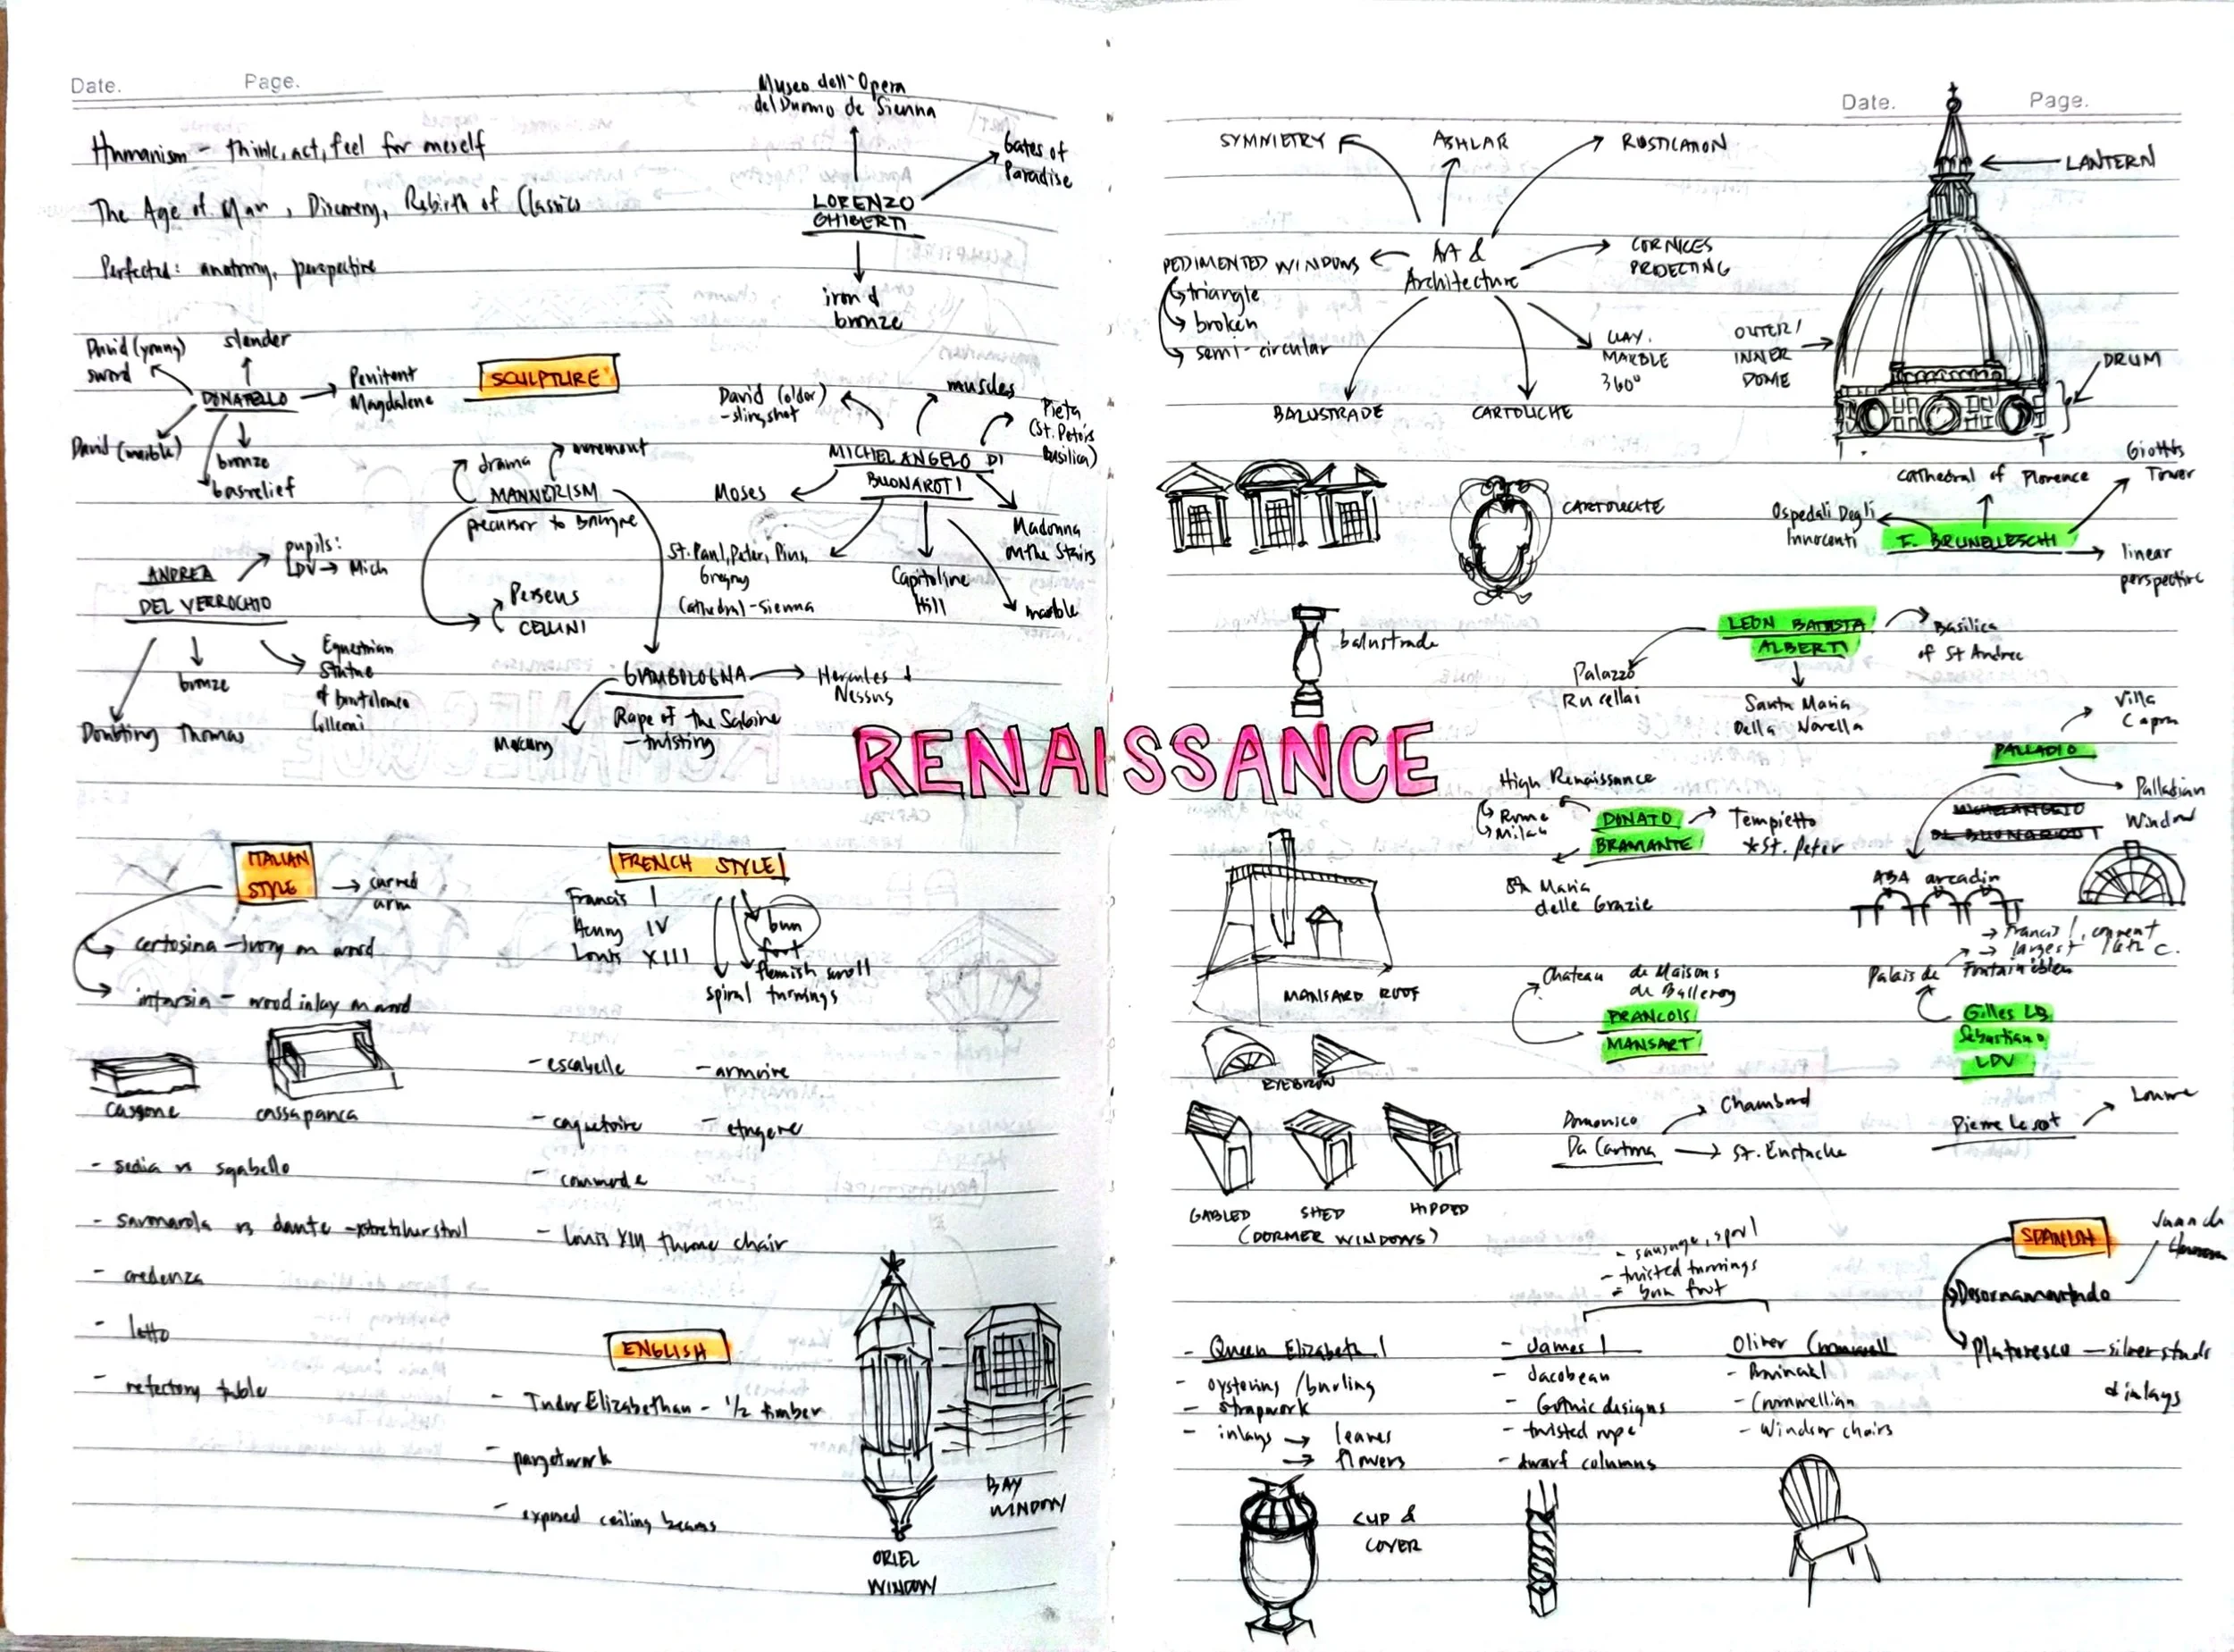 Date.
Page.
Humanism - think, act, feel for meself
The Age of Man, Discovery, Rebirth of Classics
Perfected: anatomy, perspective
Museo dell'Opera
del Duomo de Sienna
Gates of
Paradise
LORENZO
GHIBERTI
iron &
bronze
David (young)
sword
slender
DONATELLO
Penitent
Magdalene
David (marble)
bronze
basrelief
SCULPTURE
drama
movement
MANNERISM
precursor to Baroque
Perseus
CELLINI
GIAMBOLOGNA
Hercules &
Nessus
Rape of the Sabine
- twisting
Mercury
David (older)
- slingshot
muscles
Pieta
(St. Peter's
Basilica)
MICHELANGELO DI
BUONAROTI
Moses
Madonna
on the Stairs
St. Paul, Peter, Pius,
Gregory
Cathedral - Sienna
Capitoline
Hill
marble
ANDREA
DEL VERROCHIO
pupils:
LDV → Mich
bronze
Equestrian
Statue
of Bartolomeo
Colleoni
Doubting Thomas
RENAISSANCE
ITALIAN
STYLE
→ carved
arm
certosina - Ivory on wood
intarsia - wood inlay on wood
Cassone
cassapanca
- sedia vs sgabello
- savonarola vs dante - xstretcher stool
- credenza
- letto
- refectory table
FRENCH STYLE
Francis I
Henry IV
Louis XIII
bun
foot
flemish scroll
spiral turnings
- escabelle
- armoire
- caquetoire
- etagere
- commode
- Louis XIII throne chair
ENGLISH
- Tudor Elizabethan - 1/2 timber
- pargetwork
- exposed ceiling beams
ORIEL
WINDOW
BAY
WINDOW
Date.
Page.
SYMMETRY
ASHLAR
RUSTICATION
Art &
Architecture
CORNICES
PROJECTING
PEDIMENTED WINDOWS
triangle
broken
semi-circular
CLAY.
MARBLE
360°
BALUSTRADE
CARTOUCHE
LANTERN
OUTER/
INNER
DOME
DRUM
CARTOUCHE
balustrade
Cathedral of Florence
Giotto's
Tower
Ospedali Degli
Innocenti
F. BRUNELLESCHI
linear
perspective
LEON BATTISTA
ALBERTI
Basilica
of St Andrea
Palazzo
Rucellai
Santa Maria
Della Novella
PALLADIO
Villa
Capra
Palladian
Window
MICHELANGELO
DI BUONAROTI
ABA arcadin
High Renaissance
Rome
Milan
DONATO
BRAMANTE
Tempietto
*St. Peter
Sta Maria
delle Grazie
MANSARD ROOF
EYEBROW
GABLED
SHED
HIPPED
(DORMER WINDOWS)
Chateau de Maisons
de Balleroy
FRANCOIS
MANSART
→ Francis I, convent
→ largest 16th c.
Palais de Fontainebleu
Gilles LB
Sebastiano
LDV
Domenico
Da Cortona
Chambord
St. Eustache
Pierre Lescot
Louvre
- sausage, spool
- twisted turnings
- bun foot
- Queen Elizabeth I
- oystering / burling
- strapwork
- inlays → leaves
→ flowers
CUP &
COVER
- James I
- Jacobean
- Gothic designs
- twisted rope
- dwarf columns
Oliver Cromwell
- Cromwellian
- Windsor chairs
SPANISH
Juan de
Desornamentado
Plateresco - silver studs
& inlays